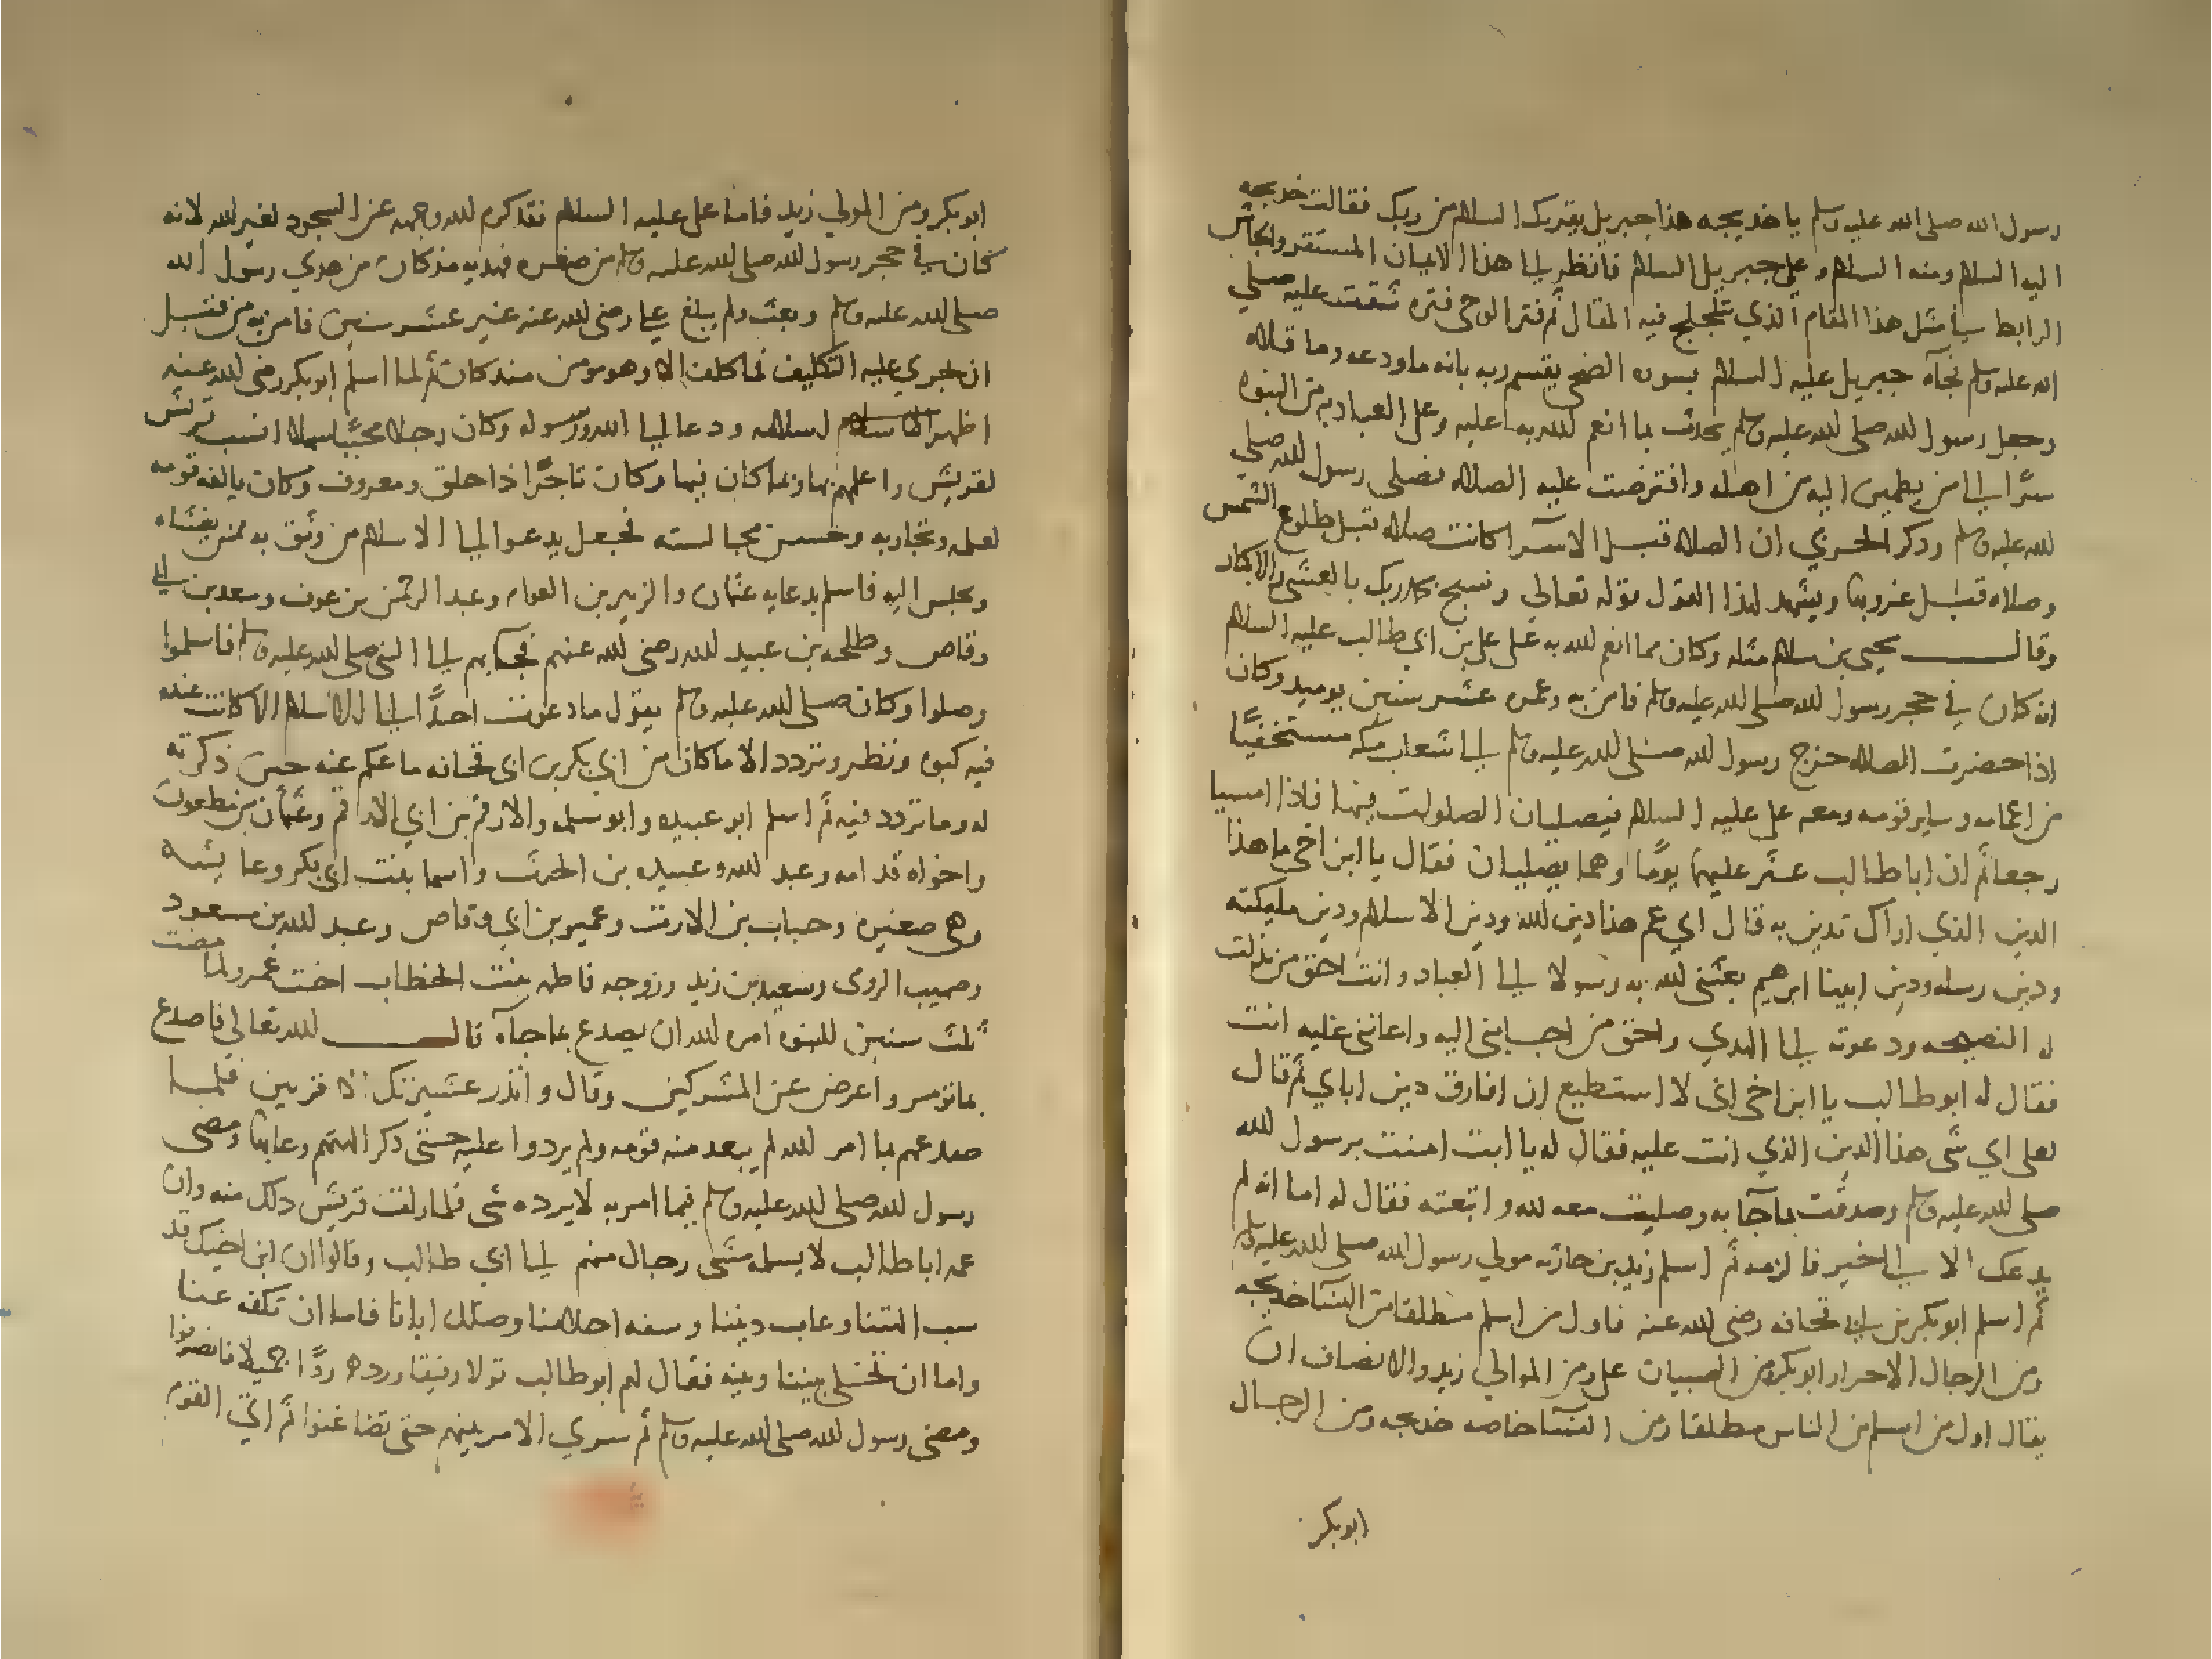 رسول الله صلى الله عليه وسلم يا خديجه هذا جبريل يقريك السلام من ربك فقالت خديجه
اليه السلام ومنه السلام وعلى جبريل السلام فانظر الى هذا الايمان المستقر والجاش
الرابط في مثل هذا المقام الذي تلجلج فيه المقال ثم فتر الوحى فتره شقت عليه صلى
الله عليه وسلم فجاه جبريل عليه السلام بسوره الضحى يقسم ربه بانه ما ودعه وما قلاه
وجعل رسول الله صلى الله عليه وسلم يحدث بما انعم الله به عليه وعلى العباد به من النبوه
سرًا الى من يطمين اليه من اهله وافترضت عليه الصلاه فصلى رسول الله صلى
الله عليه وسلم وذكر الحربي ان الصلاه قبل الاسرا كانت صلاه قبل طلوع الشمس
وصلاه قبل غروبها ويشهد لهذا القول قوله تعالى وسبح بحمد ربك بالعشى والابكار
وقال يحيى بن سلام مثله وكان مما انعم الله به على على بن ابي طالب عليه السلام
انه كان في حجر رسول الله صلى الله عليه وسلم فامن به وعمره عشر سنين يوميد وكان
اذا حضرت الصلاه خرج رسول الله صلى الله عليه وسلم الى شعاب مكه مستخفيًا
من اعمامه وساير قومه ومعه على عليه السلام فيصليان الصلوات فيها فاذا امسيا
رجعا ثم ان ابا طالب عثر عليهما يومًا وهما يصليان فقال يا ابن اخى ما هذا
الدين الذي اراك تدين به قال اي عم هذا دين الله ودين الاسلام ودين مليكته
ودين رسله ودين ابينا ابرهيم بعثنى الله به رسولا الى العباد وانت احق من بذلت
له النصيحه ودعوته الى الهدي واحق من اجابنى اليه واعاننى عليه انت
فقال له ابو طالب يا ابن اخى انى لا استطيع ان افارق دين اباي ثم قال
لعلى اي شى هذا الدين الذي انت عليه فقال له يا ابت امنت برسول الله
صلى الله عليه وسلم وصدقت بما جا به وصليت معه لله واتبعته فقال له اما انه لم
يدعك الا الى الخير فالزمه ثم اسلم زيد بن حارثه مولى رسول الله صلى الله عليه وسلم
ثم اسلم ابو بكر بن ابي قحافه رضى الله عنه فاول من اسلم مطلقا من النسا خديجه
ومن الرجال الاحرار ابو بكر ومن الصبيان على ومن الموالي زيد والانصاف ان
يقال اول من اسلم من الناس مطلقا ومن النسا خاصه خديجه ومن الرجال
ابو بكر
ابو بكر ومن الموالي زيد فاما على عليه السلام فقد كرم الله وجهه عن السجود لغير الله لانه
كان في حجر رسول الله صلى الله عليه وسلم من صغره فهديه مذ كان من هدي رسول الله
صلى الله عليه وسلم وبعث ولم يبلغ على رضى الله عنه غير عشر سنين فامن به من قبل
ان يجري عليه التكليف فما كلف الا وهو مومن منذ كان ثم لما اسلم ابو بكر رضى الله عنه
اظهر اسلامه ودعا الى الله ورسوله وكان رجلا محببًا سهلا انسب قريش
لقريش واعلمهم بها وبما كان فيها وكان تاجرًا ذا خلق ومعروف وكان يالفه قومه
لعلمه وتجاربه وحسن مجالسته فجعل يدعو الى الاسلام من وثق به ممن يغشاه
ويجلس اليه فاسلم بدعايه عثمان والزبير بن العوام وعبد الرحمن بن عوف وسعد بن ابي
وقاص وطلحه بن عبيد الله رضى الله عنهم فجا بهم الى النبي صلى الله عليه وسلم فاسلموا
وصلوا وكان صلى الله عليه وسلم يقول ما دعوت احدًا الى الاسلام الا كانت عنده
فيه كبوة ونظر وتردد الا ما كان من ابي بكر بن ابي قحافه ما عكم عنه حين ذكرته
له وما تردد فيه ثم اسلم ابو عبيده وابو سلمه والارقم بن ابي الارقم وعثمان بن مظعون
واخواه قدامه وعبد الله وعبيده بن الحرث واسما بنت ابي بكر وعايشه
وهى صغيره وخباب بن الارت وعمير بن ابي وقاص وعبد الله بن مسعود
وصهيب الرومى وسعيد بن زيد وزوجه فاطمه بنت الخطاب اخت عمر ولما مضت
ثلث سنين للنبوه امره الله ان يصدع بما جاه قال الله تعالى فاصدع
بما تومر واعرض عن المشركين وقال وانذر عشيرتك الاقربين فلما
صدعهم بما امر الله لم يبعد منه قومه ولم يردوا عليه حتى ذكر الهتهم وعابها ومضى
رسول الله صلى الله عليه وسلم فيما امر به لا يرده شى فلما رات قريش ذلك منه وان
عمه ابا طالب لا يسلمه مشى رجال منهم الى ابي طالب وقالوا ان ابن اخيك قد
سب الهتنا وعاب ديننا وسفه احلامنا وضلل ابانا فاما ان تكفه عنا
واما ان تخلى بيننا وبينه فقال لهم ابو طالب قولا رفيقا وردهم ردًا جميلا فانصرفوا
ومضى رسول الله صلى الله عليه وسلم ثم سري الامر بينهم حتى تضاغنوا ثم اتى القوم